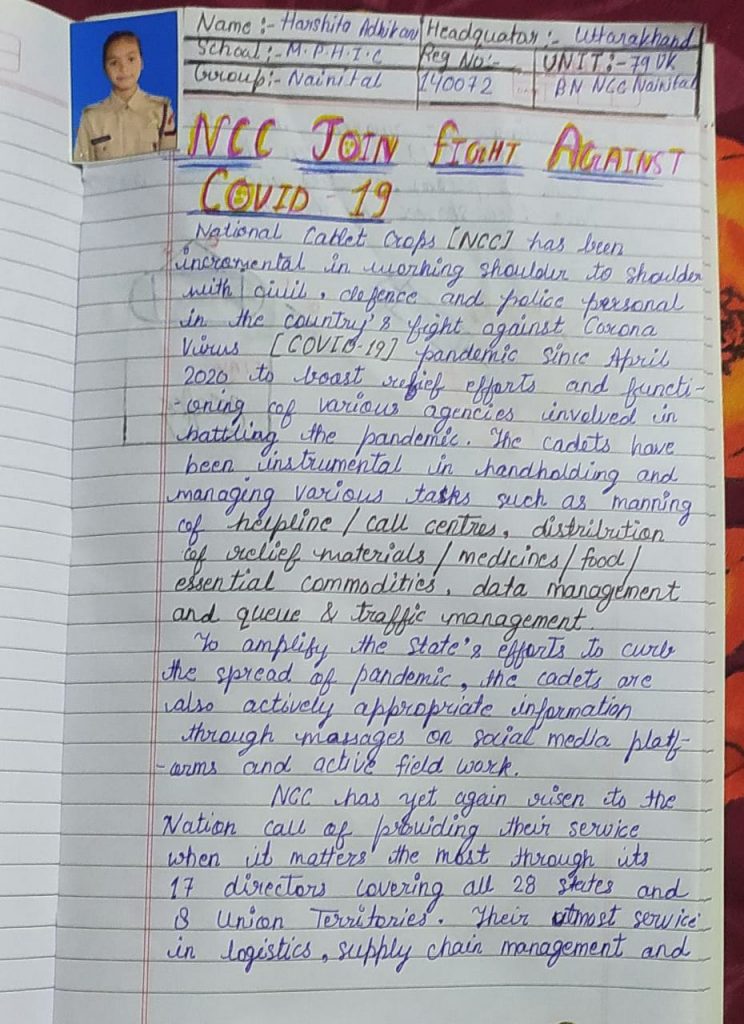 Name :- Harshita Adhikari Headquatar :- Uttarakhand
School :- M.P.H.I.C Reg No:- UNIT:- 79 UK
Group:- Nainital 140072 BN NCC Nainital
NCC JOIN FIGHT AGAINST
COVID - 19
National Cablet Crops [NCC] has been
incremental in working shoulder to shoulder
with givil, defence and police personal
in the country's fight against Corona
Virus [COVID-19] pandemic since April
2020 to boast relief efforts and functi-
-oning of various agencies involved in
battling the pandemic. The cadets have
been instrumental in handholding and
managing various tasks such as manning
of helpline / call centres, distribution
of relief materials / medicines / food /
essential commodities, data management
and queue & traffic management.
To amplify the state's efforts to curb
the spread of pandemic, the cadets are
also actively appropriate information
through massages on social media platf-
-orms and active field work.
NCC has yet again risen to the
Nation call of providing their service
when it matters the most through its
17 directors covering all 28 states and
8 Union Territories. Their utmost service
in logistics, supply chain management and